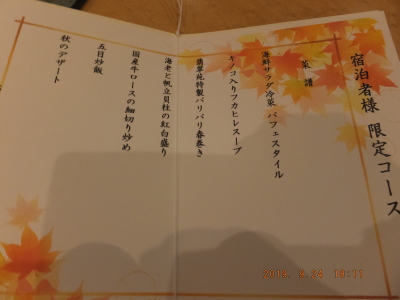 宿泊者様 限定コース
菜譜
海鮮サラダ冷菜 パフェスタイル
キノコ入りフカヒレスープ
翡翠苑特製パリパリ春巻き
海老と帆立貝柱の紅白盛り
国産牛ロースの細切り炒め
五目炒飯
秋のデザート